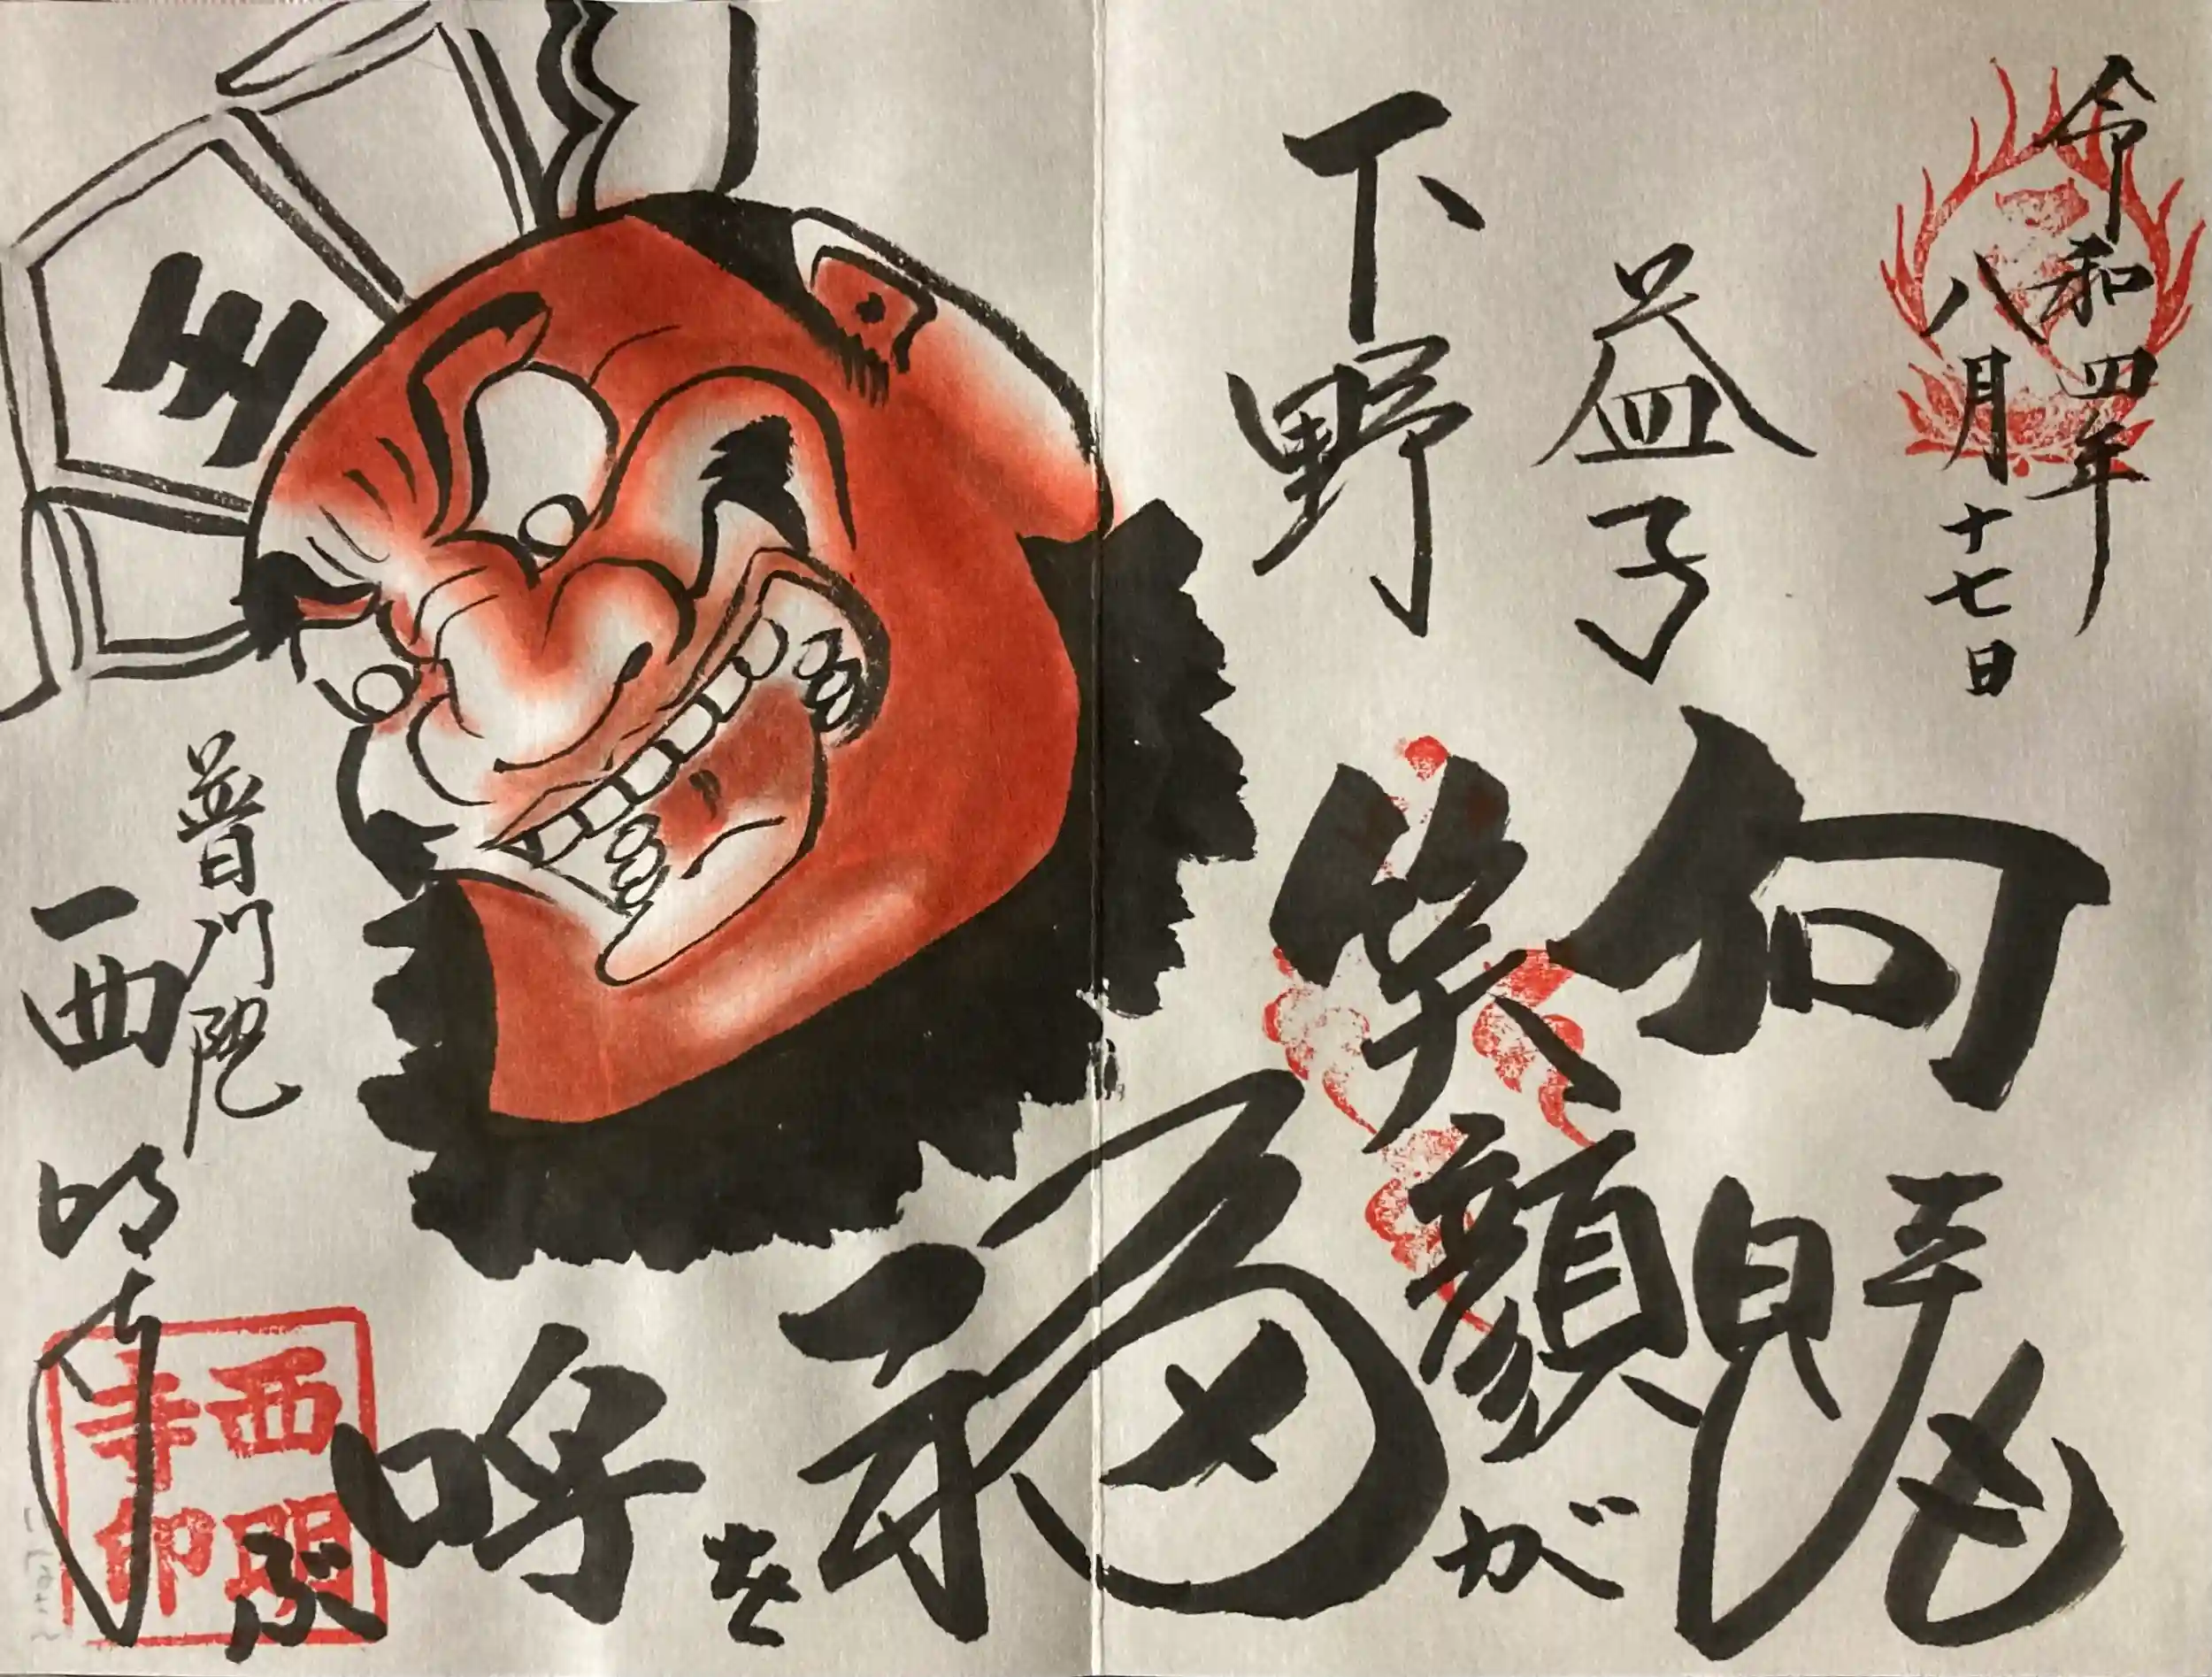 令和四年
八月十七日
益子
下野
笑顔が
福を呼ぶ
王
普門院
西明寺
西明
寺印